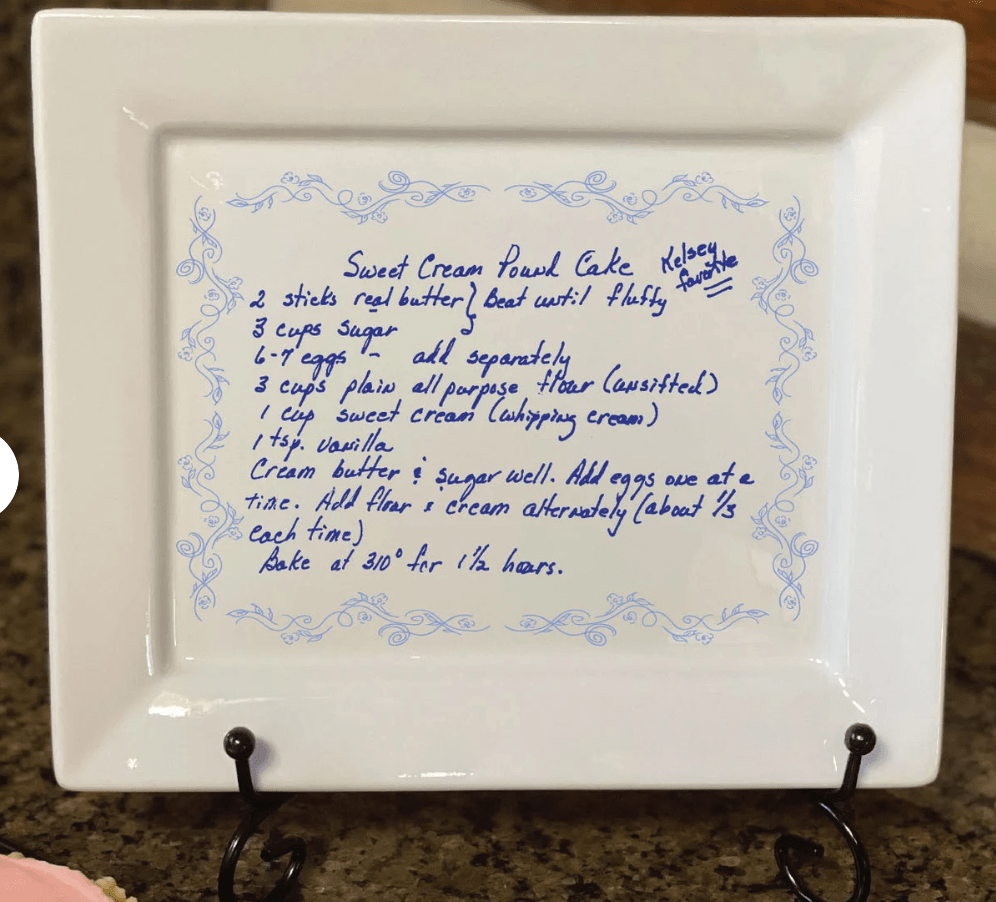 Sweet Cream Pound Cake
Kelsey
favorite
2 sticks real butter } Beat until fluffy
3 cups sugar
6-7 eggs - add separately
3 cups plain all purpose flour (unsifted)
1 cup sweet cream (whipping cream)
1 tsp. vanilla
Cream butter & sugar well. Add eggs one at a
time. Add flour & cream alternately (about 1/3
each time)
Bake at 310° for 1 1/2 hours.